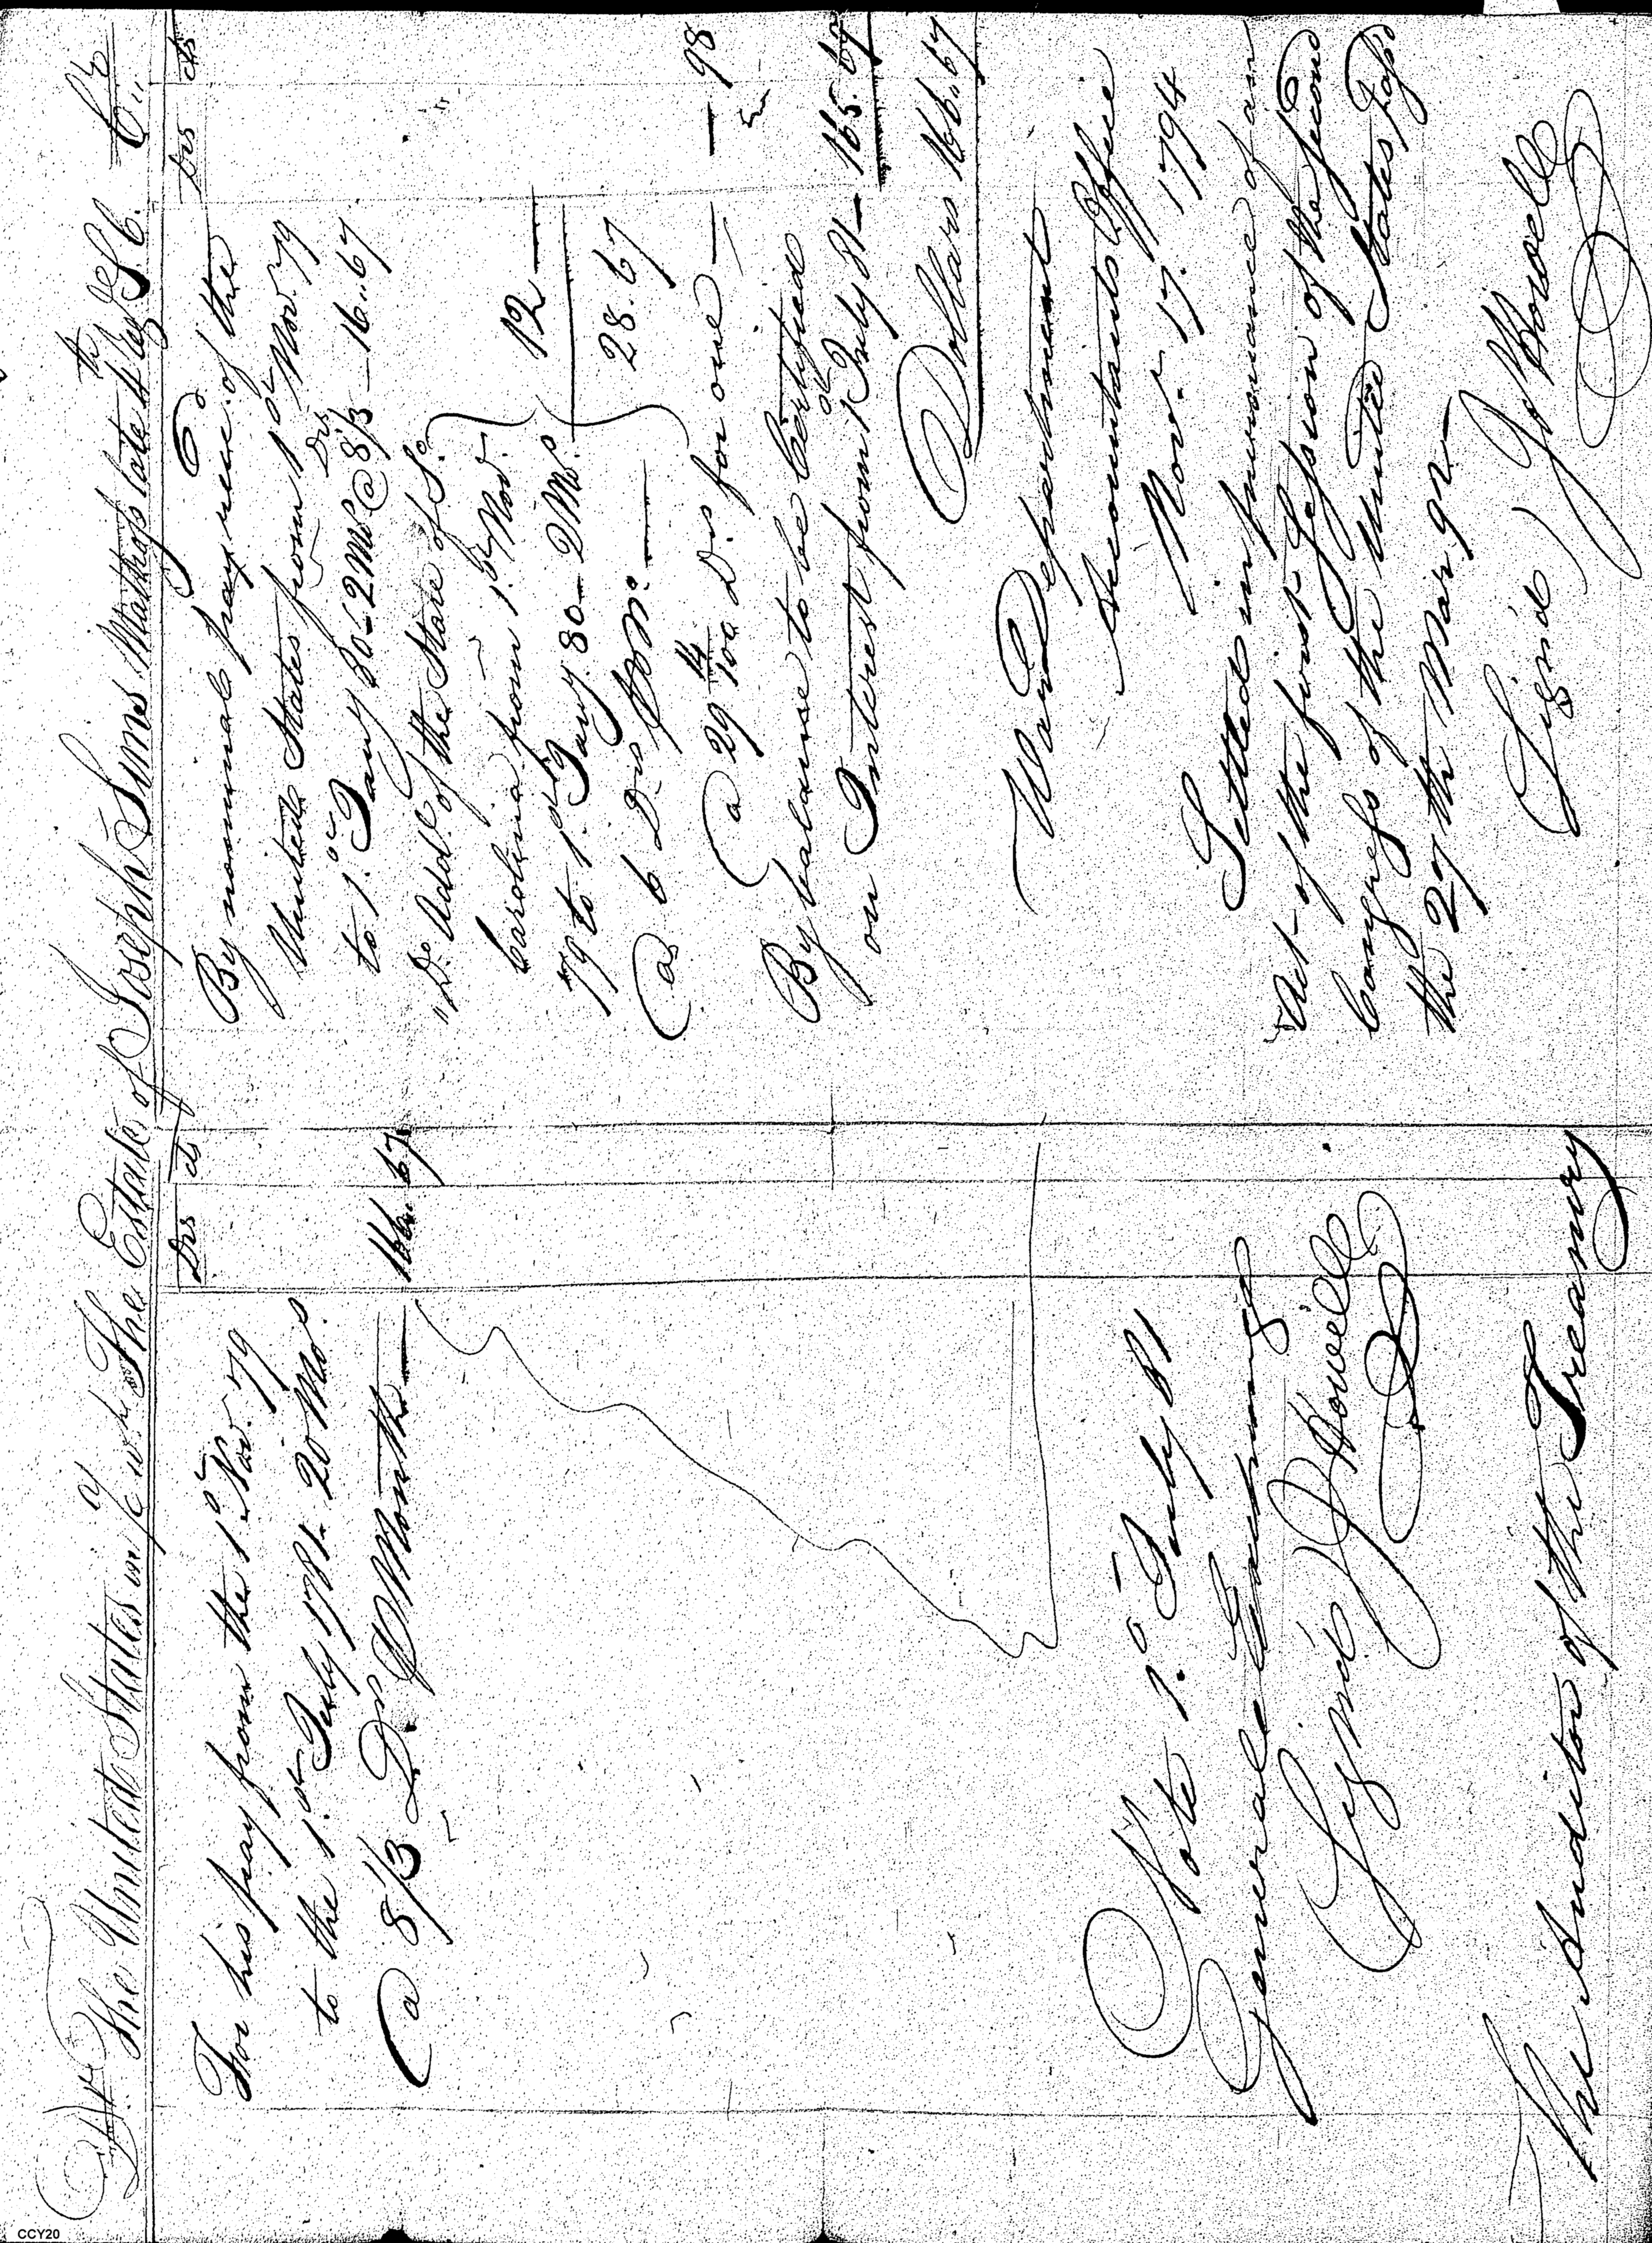 Dr. The United States in a/c wh. The Estate of Joseph Sims Matross late 4th Reg. S.C. Cr.
Drs cts
For his pay from the 1st Nov. 79
to the 1st July 1781. 20 Mos.
@ 8 1/3 Drs. P Month — 166. 67
Note 1st July 81
General Lachung
Signd. J Howell
The Auditor of the Treasury
Drs cts
By nominal pay recd. of the
United States from 1st Nov. 79
to 1st Jany 80 - 2 Mos @ 8 1/3 Drs — 16.. 67
" Do. Addl. of the State of So.
Carolina from 1st Nov.
79 to 1st Jany. 80 — 2 Mos. 12 —
@ 6 Drs P Mo. — 28. 67
@ 29 14/100 Drs for one — — 98
By balance to be Certified
on Interest from 1st July 81 — 165. 69
Dollars 166. 67
War Department
Accountants Office
Novr. 17. 1794
Settled in pursuance of an
Act of the first Session of the second
Congress of the United States Passd
the 27th Mar. 92 —
Signd) J Howell
CCY20